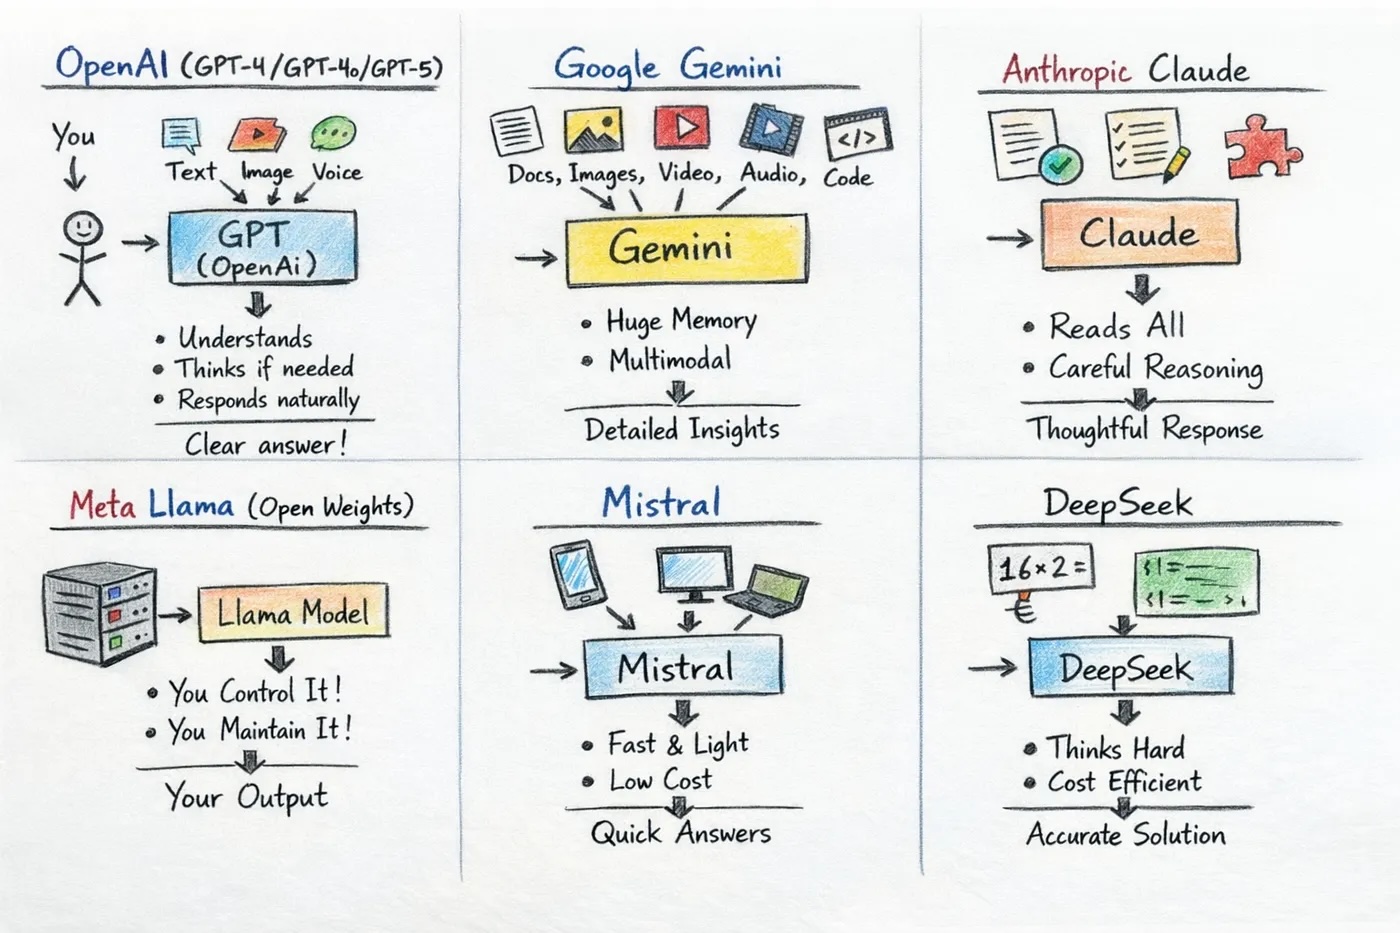 OpenAI (GPT-4/GPT-4o/GPT-5)
You
Text Image Voice
GPT
(OpenAi)
• Understands
• Thinks if needed
• Responds naturally
Clear answer!
Google Gemini
</>
Docs, Images, Video, Audio, Code
Gemini
• Huge Memory
• Multimodal
Detailed Insights
Anthropic Claude
Claude
• Reads All
• Careful Reasoning
Thoughtful Response
Meta Llama (Open Weights)
Llama Model
• You Control It!
• You Maintain It!
Your Output
Mistral
Mistral
• Fast & Light
• Low Cost
Quick Answers
DeepSeek
16×2=
DeepSeek
• Thinks Hard
• Cost Efficient
Accurate Solution